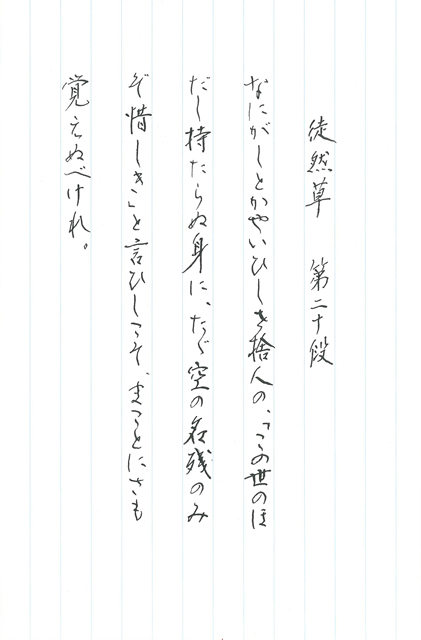 徒然草　第二十段
なにがしとかやいひしを捨人の、「この世のほ
だし持たらぬ身に、たゞ空の名残のみ
ぞ惜しき」と言ひしこそ、まことにさも
覚えぬべけれ。